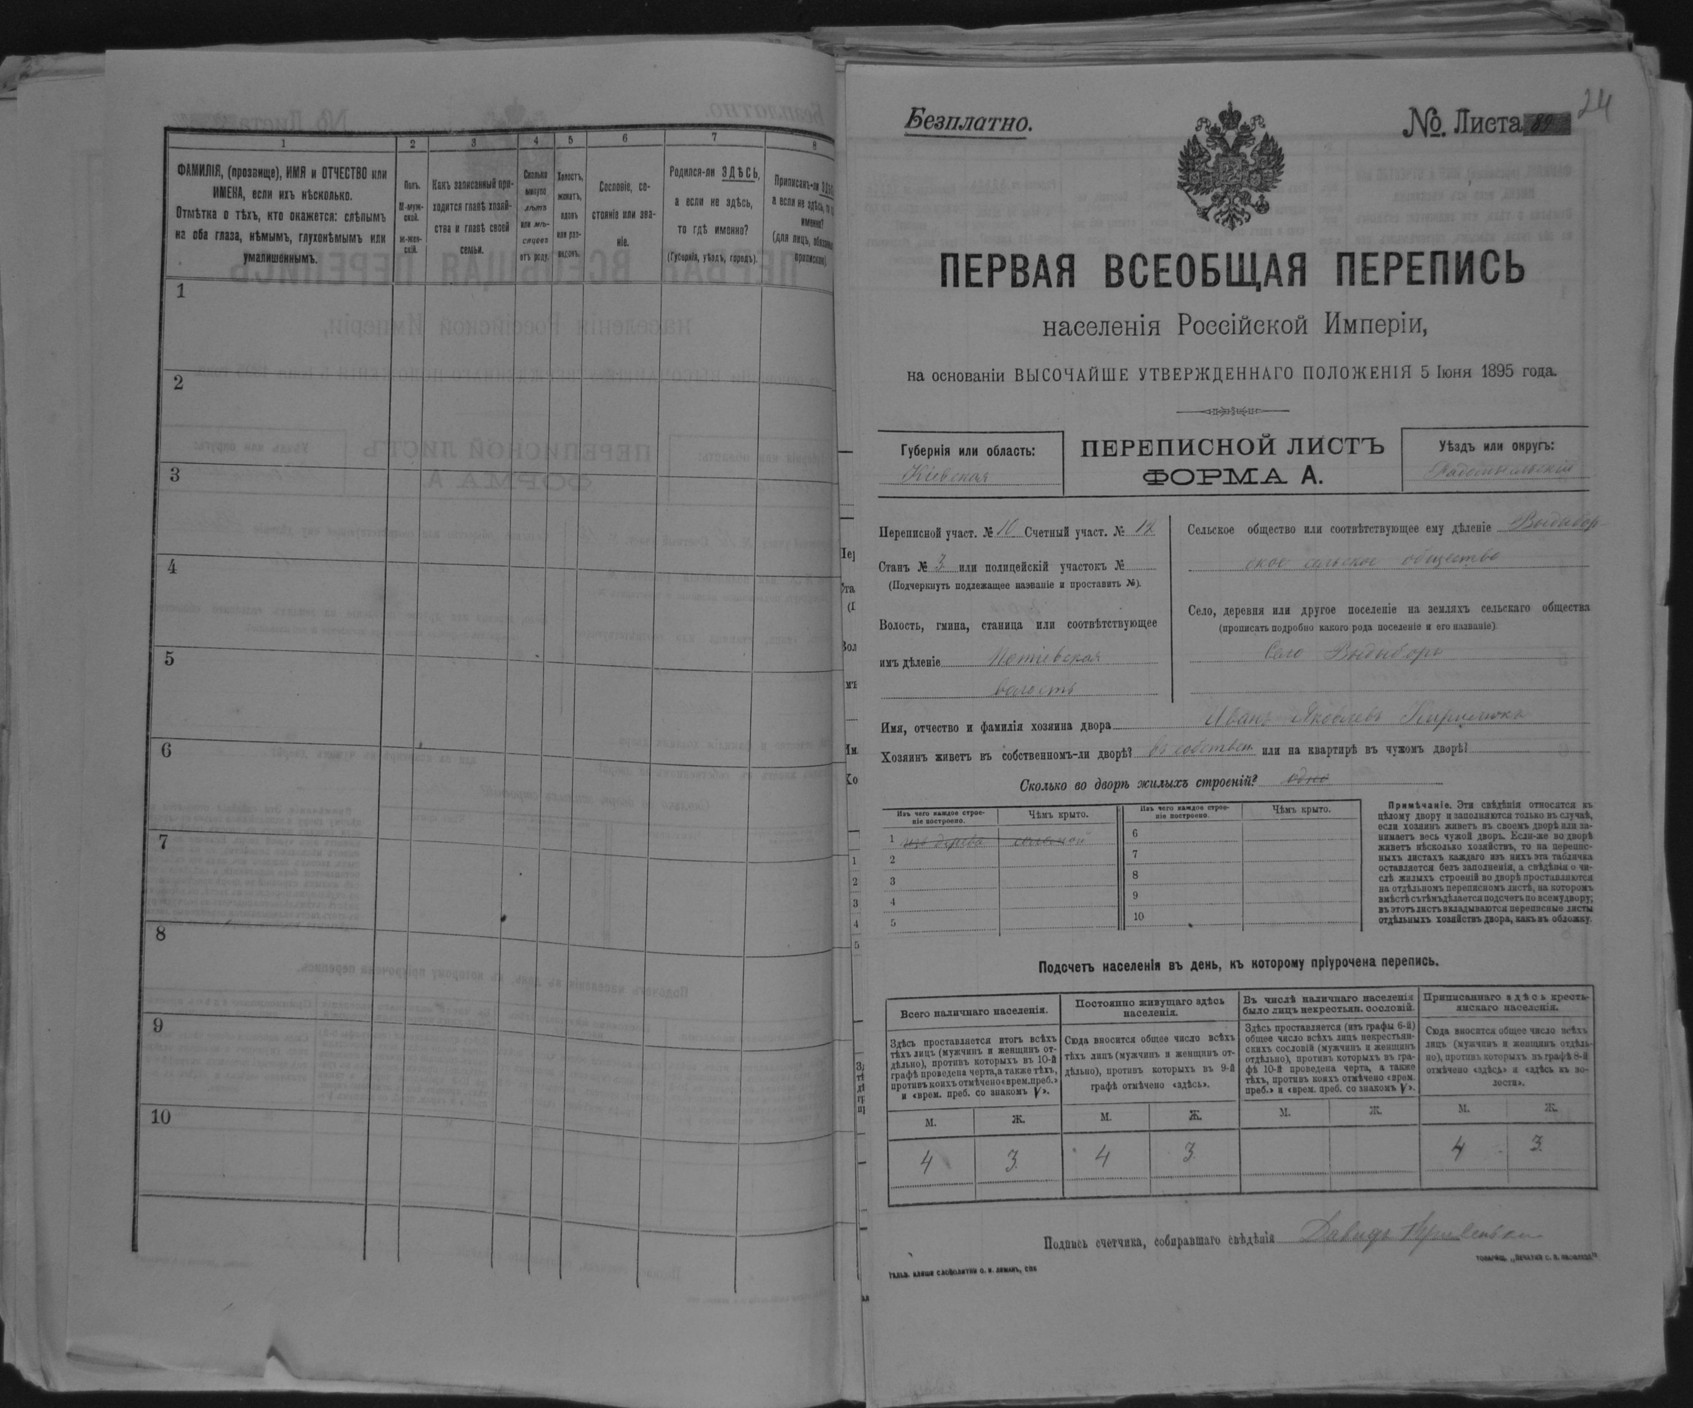 1 2 3 4 5 6 7 8
ФАМИЛІЯ, (прозвище), ИМЯ и ОТЧЕСТВО или
ИМЕНА, если ихъ нѣсколько.
Отмѣтка о тѣхъ, кто окажется: слѣпымъ
на оба глаза, нѣмымъ, глухонѣмымъ или
умалишеннымъ.
Полъ.
М-муж-
ской.
Ж-жен-
скій.
Какъ записанный при-
ходится главѣ хозяй-
ства и главѣ своей
семьи.
Сколько
минуло
лѣтъ
или мѣ-
сяцевъ
отъ роду.
Холостъ,
женатъ,
вдовъ
или раз-
веденъ.
Сословіе, со-
стояніе или зва-
ніе.
Родился-ли ЗДѢСЬ,
а если не здѣсь,
то гдѣ именно?
(Губернія, уѣздъ, городъ).
Приписанъ-ли
а если не здѣсь,
именно?
(для лицъ,
1
2
3
4
5
6
7
8
9
10
Безплатно.
№ Листа 89
24
ПЕРВАЯ ВСЕОБЩАЯ ПЕРЕПИСЬ
населенія Россійской Имперіи,
на основаніи ВЫСОЧАЙШЕ УТВЕРЖДЕННАГО ПОЛОЖЕНІЯ 5 Іюня 1895 года.
Губернія или область:
Кіевская
ПЕРЕПИСНОЙ ЛИСТЪ
ФОРМА А.
Уѣздъ или округъ:
Радомысльскій
Переписной участ. № 10 Счетный участ. № 12
Станъ № 3 или полицейскій участокъ №
(Подчеркнуть подлежащее названіе и проставить №).
Волость, гмина, станица или соотвѣтствующее
имъ дѣленіе Потіевская
волость
Сельское общество или соотвѣтствующее ему дѣленіе Выдыбор-
ское сельское общество
Село, деревня или другое поселеніе на земляхъ сельскаго общества
(прописать подробно какого рода поселеніе и его названіе)
Село Выдыборъ
Имя, отчество и фамилія хозяина двора Иванъ Яковлевъ
Хозяинъ живетъ въ собственномъ-ли дворѣ? въ собствен или на квартирѣ въ чужомъ дворѣ?
Сколько во дворѣ жилыхъ строеній? одно
Изъ чего каждое строе-
ніе построено.
Чѣмъ крыто.
Изъ чего каждое строе-
ніе построено.
Чѣмъ крыто.
1 изъ дерева соломой
2
3
4
5
6
7
8
9
10
Примѣчаніе. Эти свѣдѣнія относятся къ
цѣлому двору и заполняются только въ случаѣ,
если хозяинъ живетъ въ своемъ дворѣ или за-
нимаетъ весь чужой дворъ. Если-же во дворѣ
живетъ нѣсколько хозяйствъ, то на перепис-
ныхъ листахъ каждаго изъ нихъ эта табличка
оставляется безъ заполненія, а свѣдѣнія о чи-
слѣ жилыхъ строеній во дворѣ проставляются
на отдѣльномъ переписномъ листѣ, на которомъ
вмѣстѣ съ тѣмъ дѣлается подсчетъ по всему двору;
въ этотъ листъ вкладываются переписные листы
отдѣльныхъ хозяйствъ двора, какъ въ обложку.
Подсчетъ населенія въ день, къ которому пріурочена перепись.
Всего наличнаго населенія.
Здѣсь проставляется итогъ всѣхъ
тѣхъ лицъ (мужчинъ и женщинъ от-
дѣльно), противъ которыхъ въ 10-й
графѣ проведена черта, а также тѣхъ,
противъ коихъ отмѣчено «врем. преб.»
и «врем. преб. со знакомъ V».
Постоянно живущаго здѣсь
населенія.
Сюда вносится общее число всѣхъ
тѣхъ лицъ (мужчинъ и женщинъ от-
дѣльно), противъ которыхъ въ 9-й
графѣ отмѣчено «здѣсь».
Въ числѣ наличнаго населенія
было лицъ некрестьян. сословій.
Здѣсь проставляется (изъ графы 6-й)
общее число всѣхъ лицъ некрестьян-
скихъ сословій (мужчинъ и женщинъ
отдѣльно), противъ которыхъ въ гра-
фѣ 10-й проведена черта, а также
тѣхъ, противъ коихъ отмѣчено «врем.
преб.» и «врем. преб. со знакомъ V».
Приписаннаго здѣсь кресть-
янскаго населенія.
Сюда вносится общее число всѣхъ
лицъ (мужчинъ и женщинъ отдѣль-
но), противъ которыхъ въ графѣ 8-й
отмѣчено «здѣсь» и «здѣсь въ во-
лости».
М. Ж. М. Ж. М. Ж. М. Ж.
4 3 4 3 4 3
Подпись счетчика, собиравшаго свѣдѣнія Давидъ